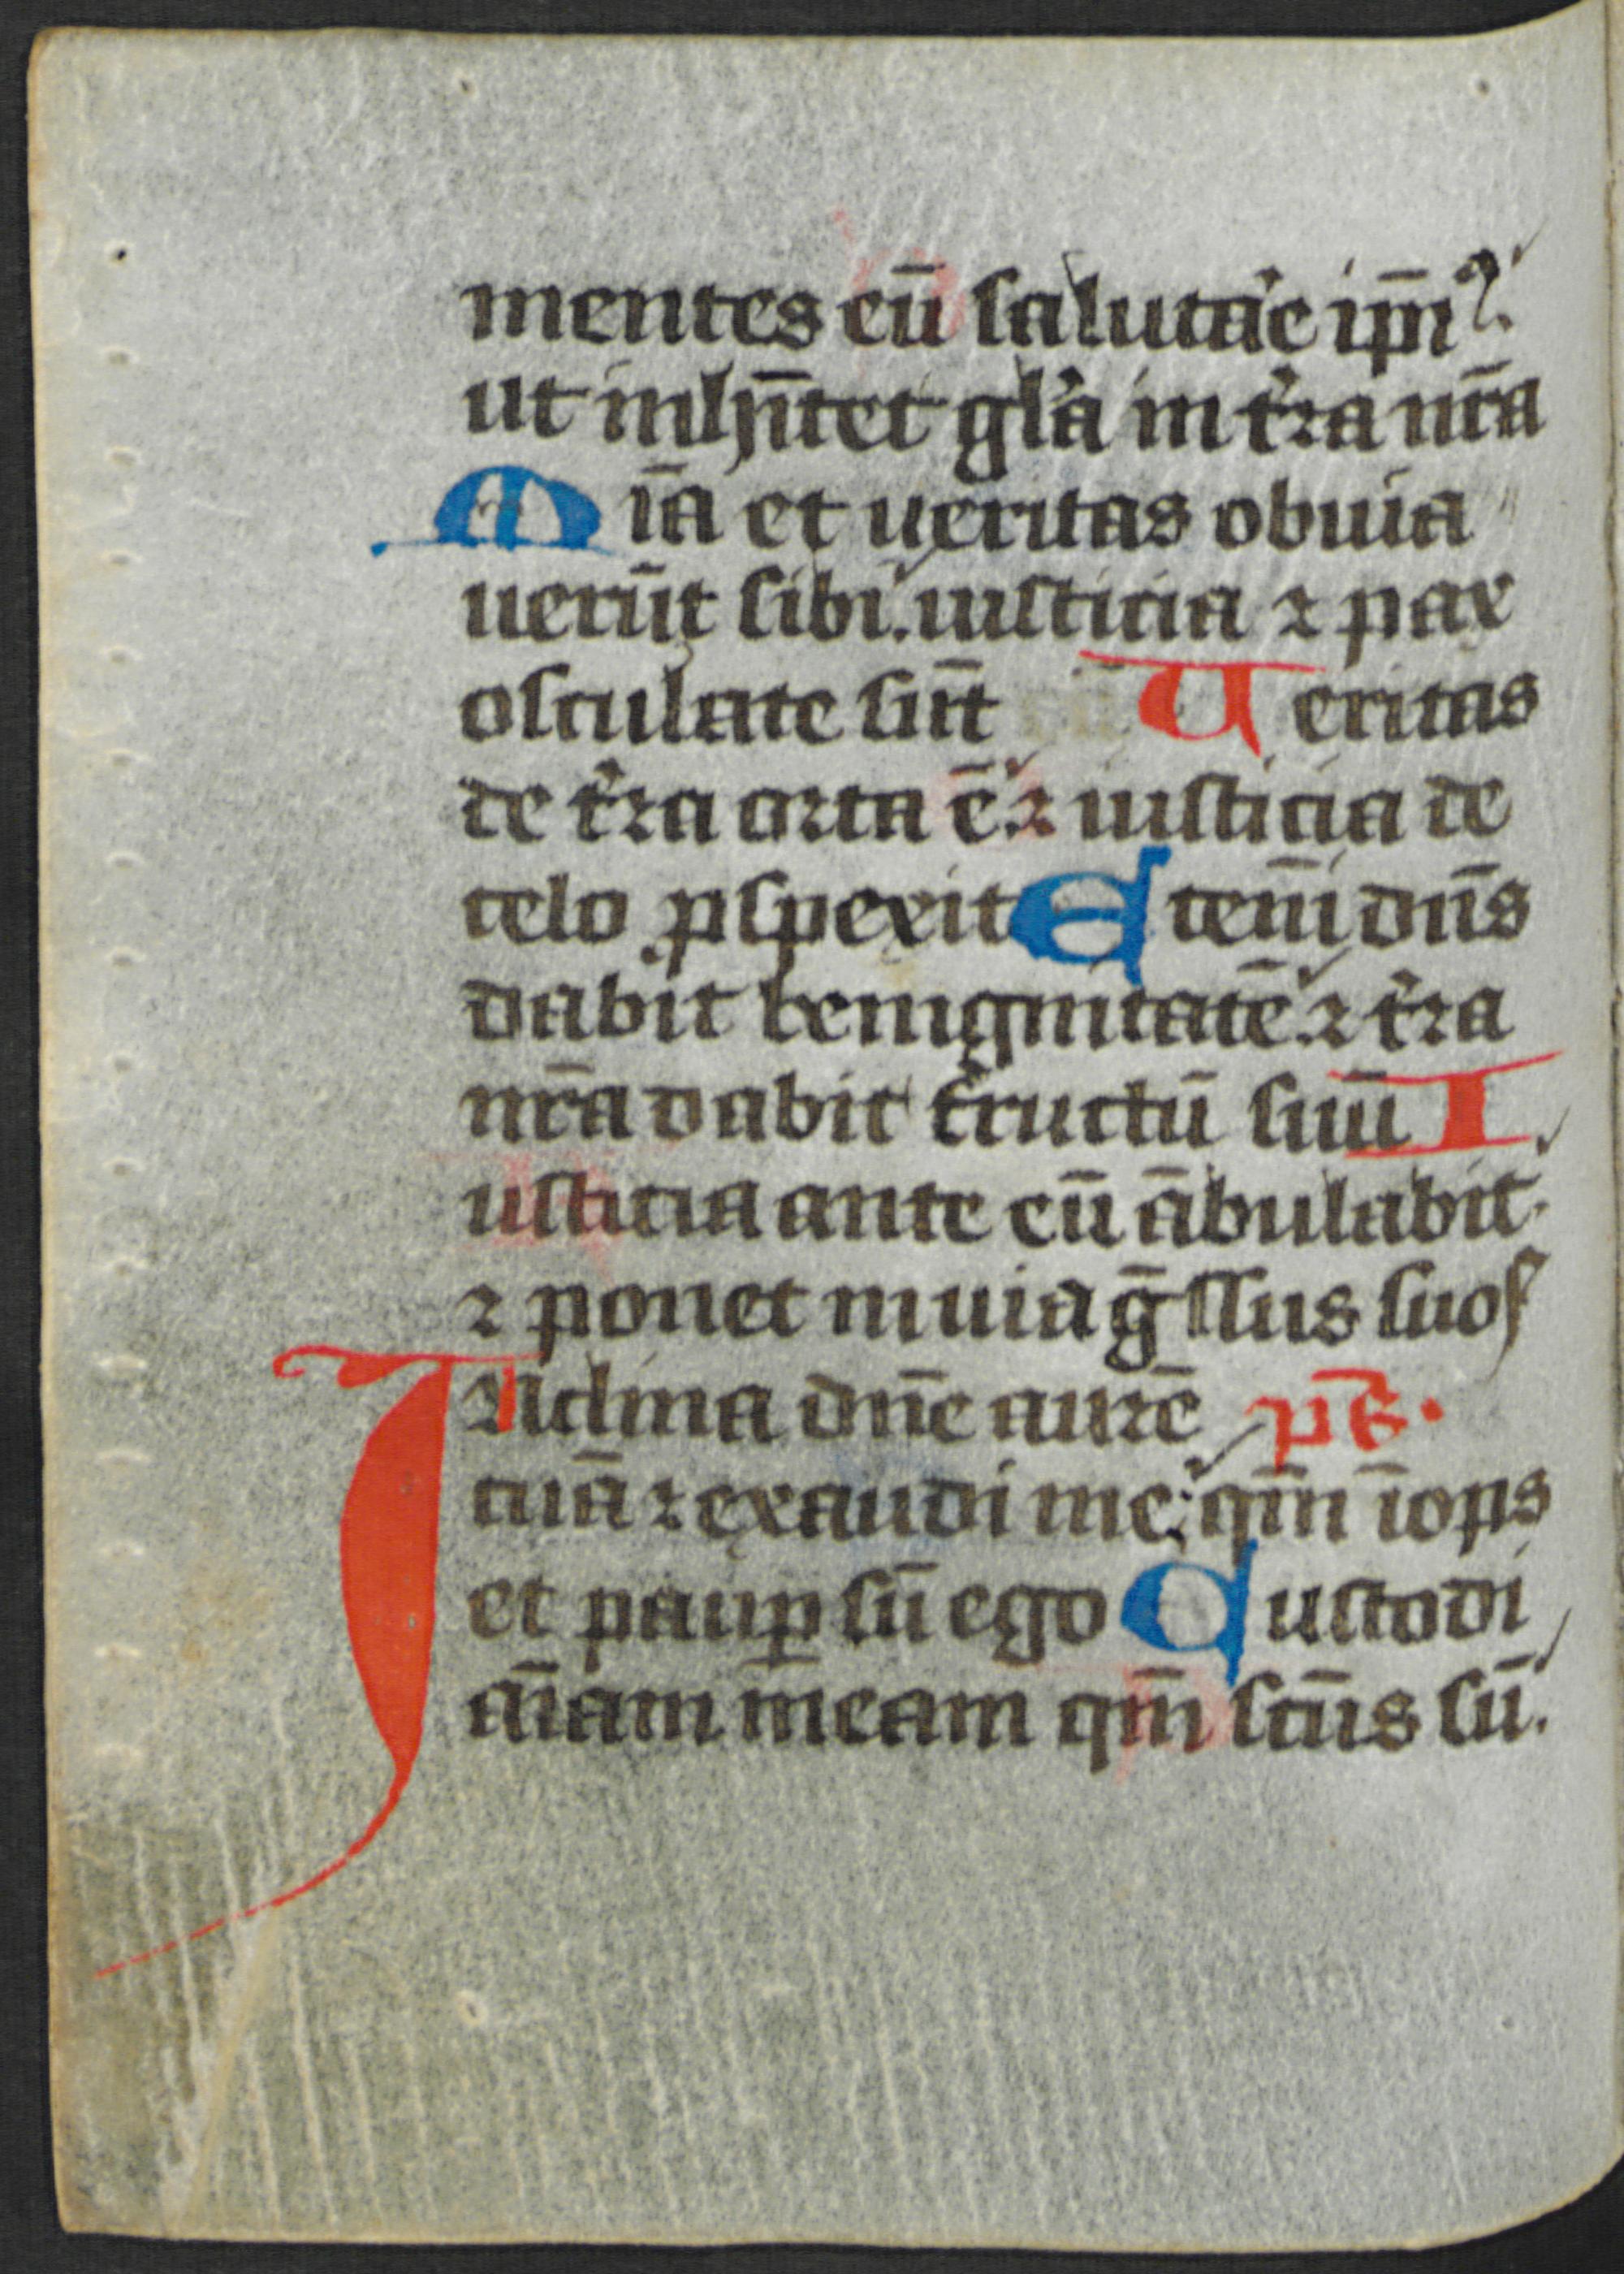 mentes eū salutar̾e ip̄i⁹.
ut inhītet gl'a in t'ra nr̄a
M īa et ueritas obuia
uerūt sibi. iusticia ⁊ pax
osculate sūt U eritas
de t'ra orta ē. ⁊ iusticia de
celo ꝓspexit E teni᷈ dn̄s
dabit benignitatē. ⁊ t'ra
nr̄a dabit fructū suū I
usticia ante eū ābulabit.
⁊ ponet in uia ḡssus suos
INclina dn̄e aurē p̄s.
tuā ⁊ exaudi me. qm̄ īops
et paup̱ sū ego C ustodi
āīam meam qm̄ sc̄us sū.